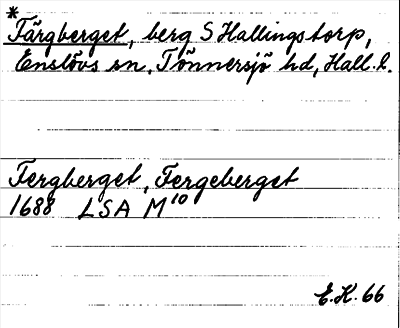 *
Färgberget, berg S Hallingstorp,
Enslövs sn, Tönnersjö hd, Hall. l.
Fergberget, Fergeberget
1688 LSA M¹⁰
E.K. 66